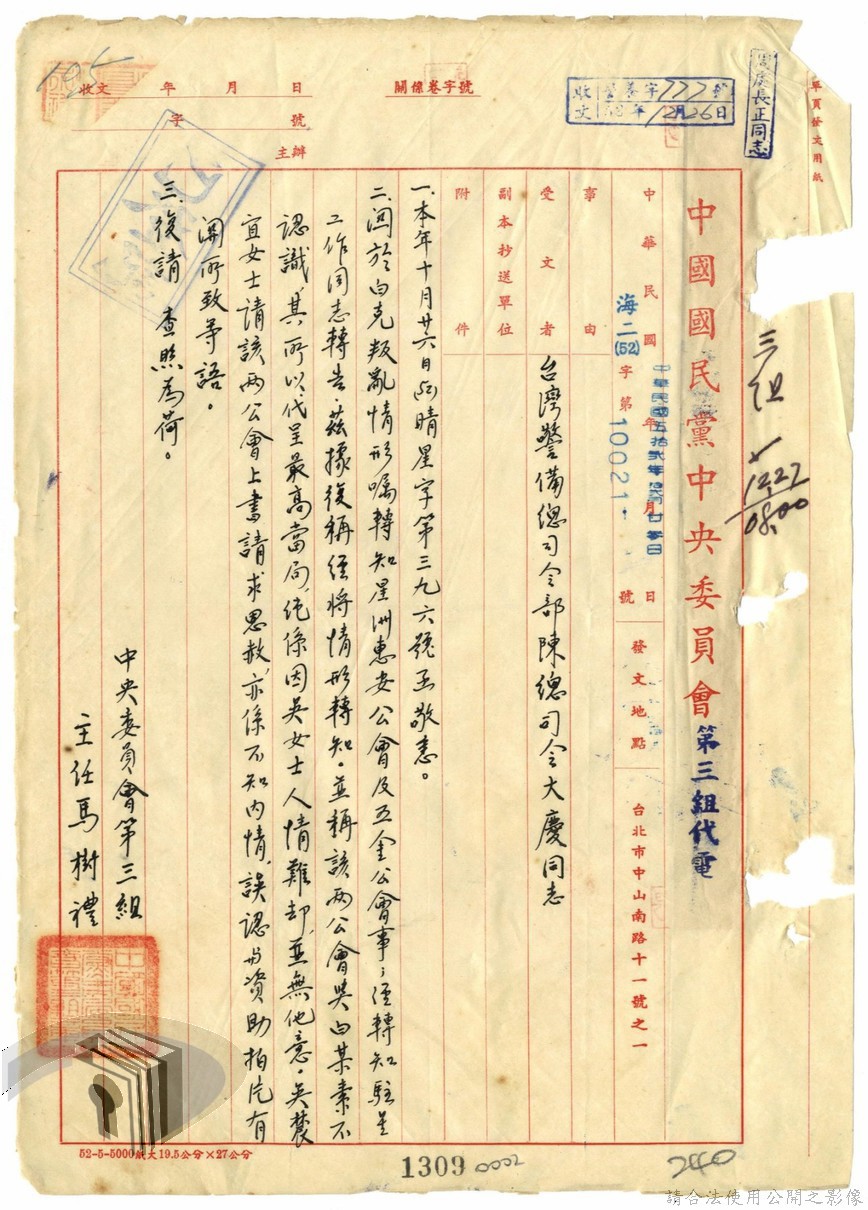 單頁發文用紙
周處長正同志
三組
12.27
08.00
中國國民黨中央委員會第三組代電
中華民國 年 月 日
中華民國五拾貳年
海二(52)字第10021號
發文地點 台北市中山南路十一號之一
事由
受文者 台灣警備總司令部陳總司令大慶同志
副本抄送單位
附件
一、本年十月廿六日(52)晴星字第三九六號函敬悉。
二、關於白克叛亂情形囑轉知星洲惠安公會及五金公會事,經轉知駐星
工作同志轉告。茲據復稱經將情形轉知。並稱該兩公會與白某素不
認識,其所以代呈最高當局,純係因吳女士人情難却,並無他意。吳
宜女士請該兩公會上書請求恩赦,亦係不知內情,誤認與資助拍片有
關所致等語。
三、復請 查照為荷。
中央委員會第三組
主任馬樹禮
收文 年 月 日
字 號
主辦
關係卷字號
收文 字777號
年12月26日
105
52-5-5000紙文19.5公分×27公分
1309
0002
240
請合法使用公開之影像